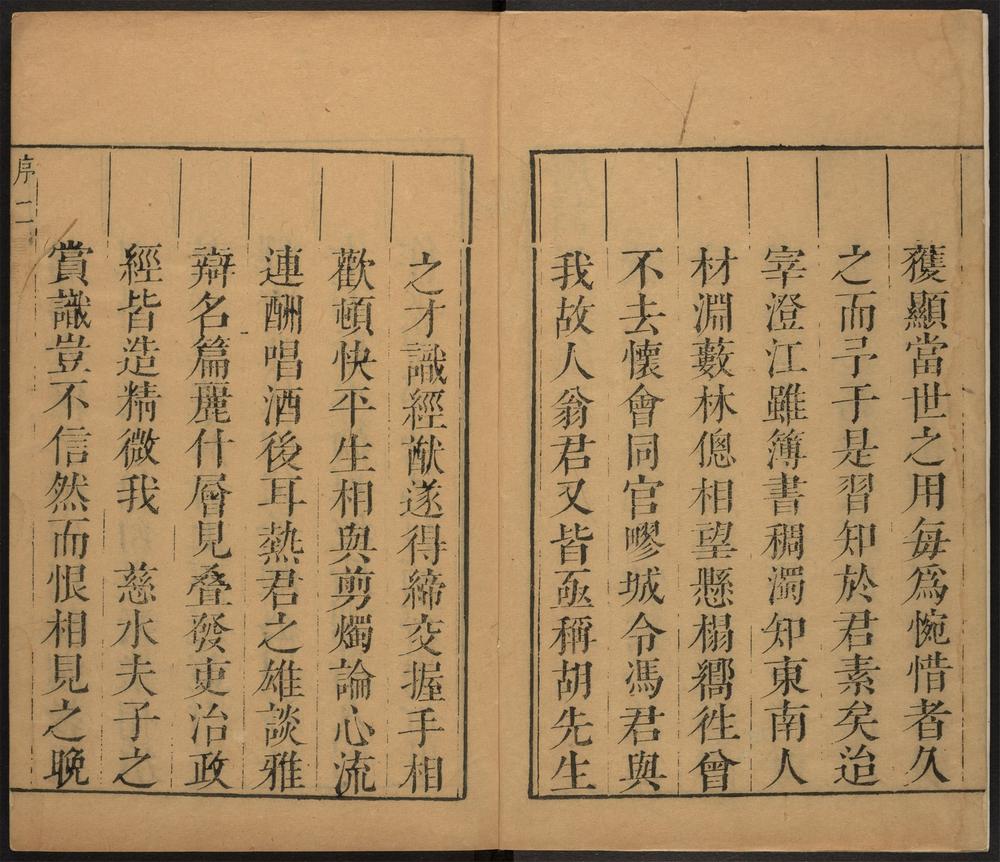 獲顯當世之用每爲惋惜者久
之而予于是習知於君素矣迨
宰澄江雖簿書稠濁知東南人
材淵藪林傯相望懸榻嚮徃曾
不去懷會同官疁城令馮君與
我故人翁君又皆亟稱胡先生
之才識經猷遂得締交握手相
歡頓快平生相與剪燭論心流
連酬唱酒後耳熱君之雄談雅
辯名篇麗什層見叠發吏治政
經皆造精微我　慈水夫子之
賞識豈不信然而恨相見之晚
序 二